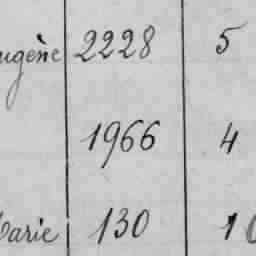 ugène 2228 5
1966 4
Marie 130 10